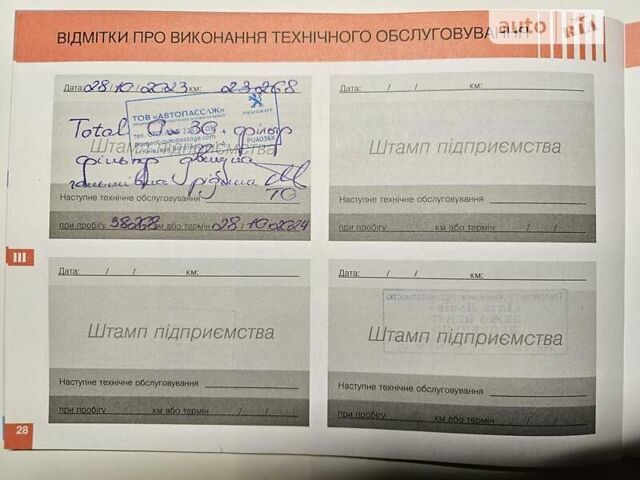 auto RIA
ВІДМІТКИ ПРО ВИКОНАННЯ ТЕХНІЧНОГО ОБСЛУГОВУВАННЯ
Дата: 28/10/2023 км: 23268
ТОВ «АВТОПАССАЖ»
PEUGEOT
PUA036X
Total 0w30. фільтр
Штамп підприємства
фільтр
гальмівна рідина
ТО
Наступне технічне обслуговування
при пробігу 38268 км або термін 28/10/2024
Дата: / / км:
Штамп підприємства
Наступне технічне обслуговування
при пробігу км або термін / /
III
Дата: / / км:
Штамп підприємства
Наступне технічне обслуговування
при пробігу км або термін / /
Дата: / / км:
Штамп підприємства
Наступне технічне обслуговування
при пробігу км або термін / /
28